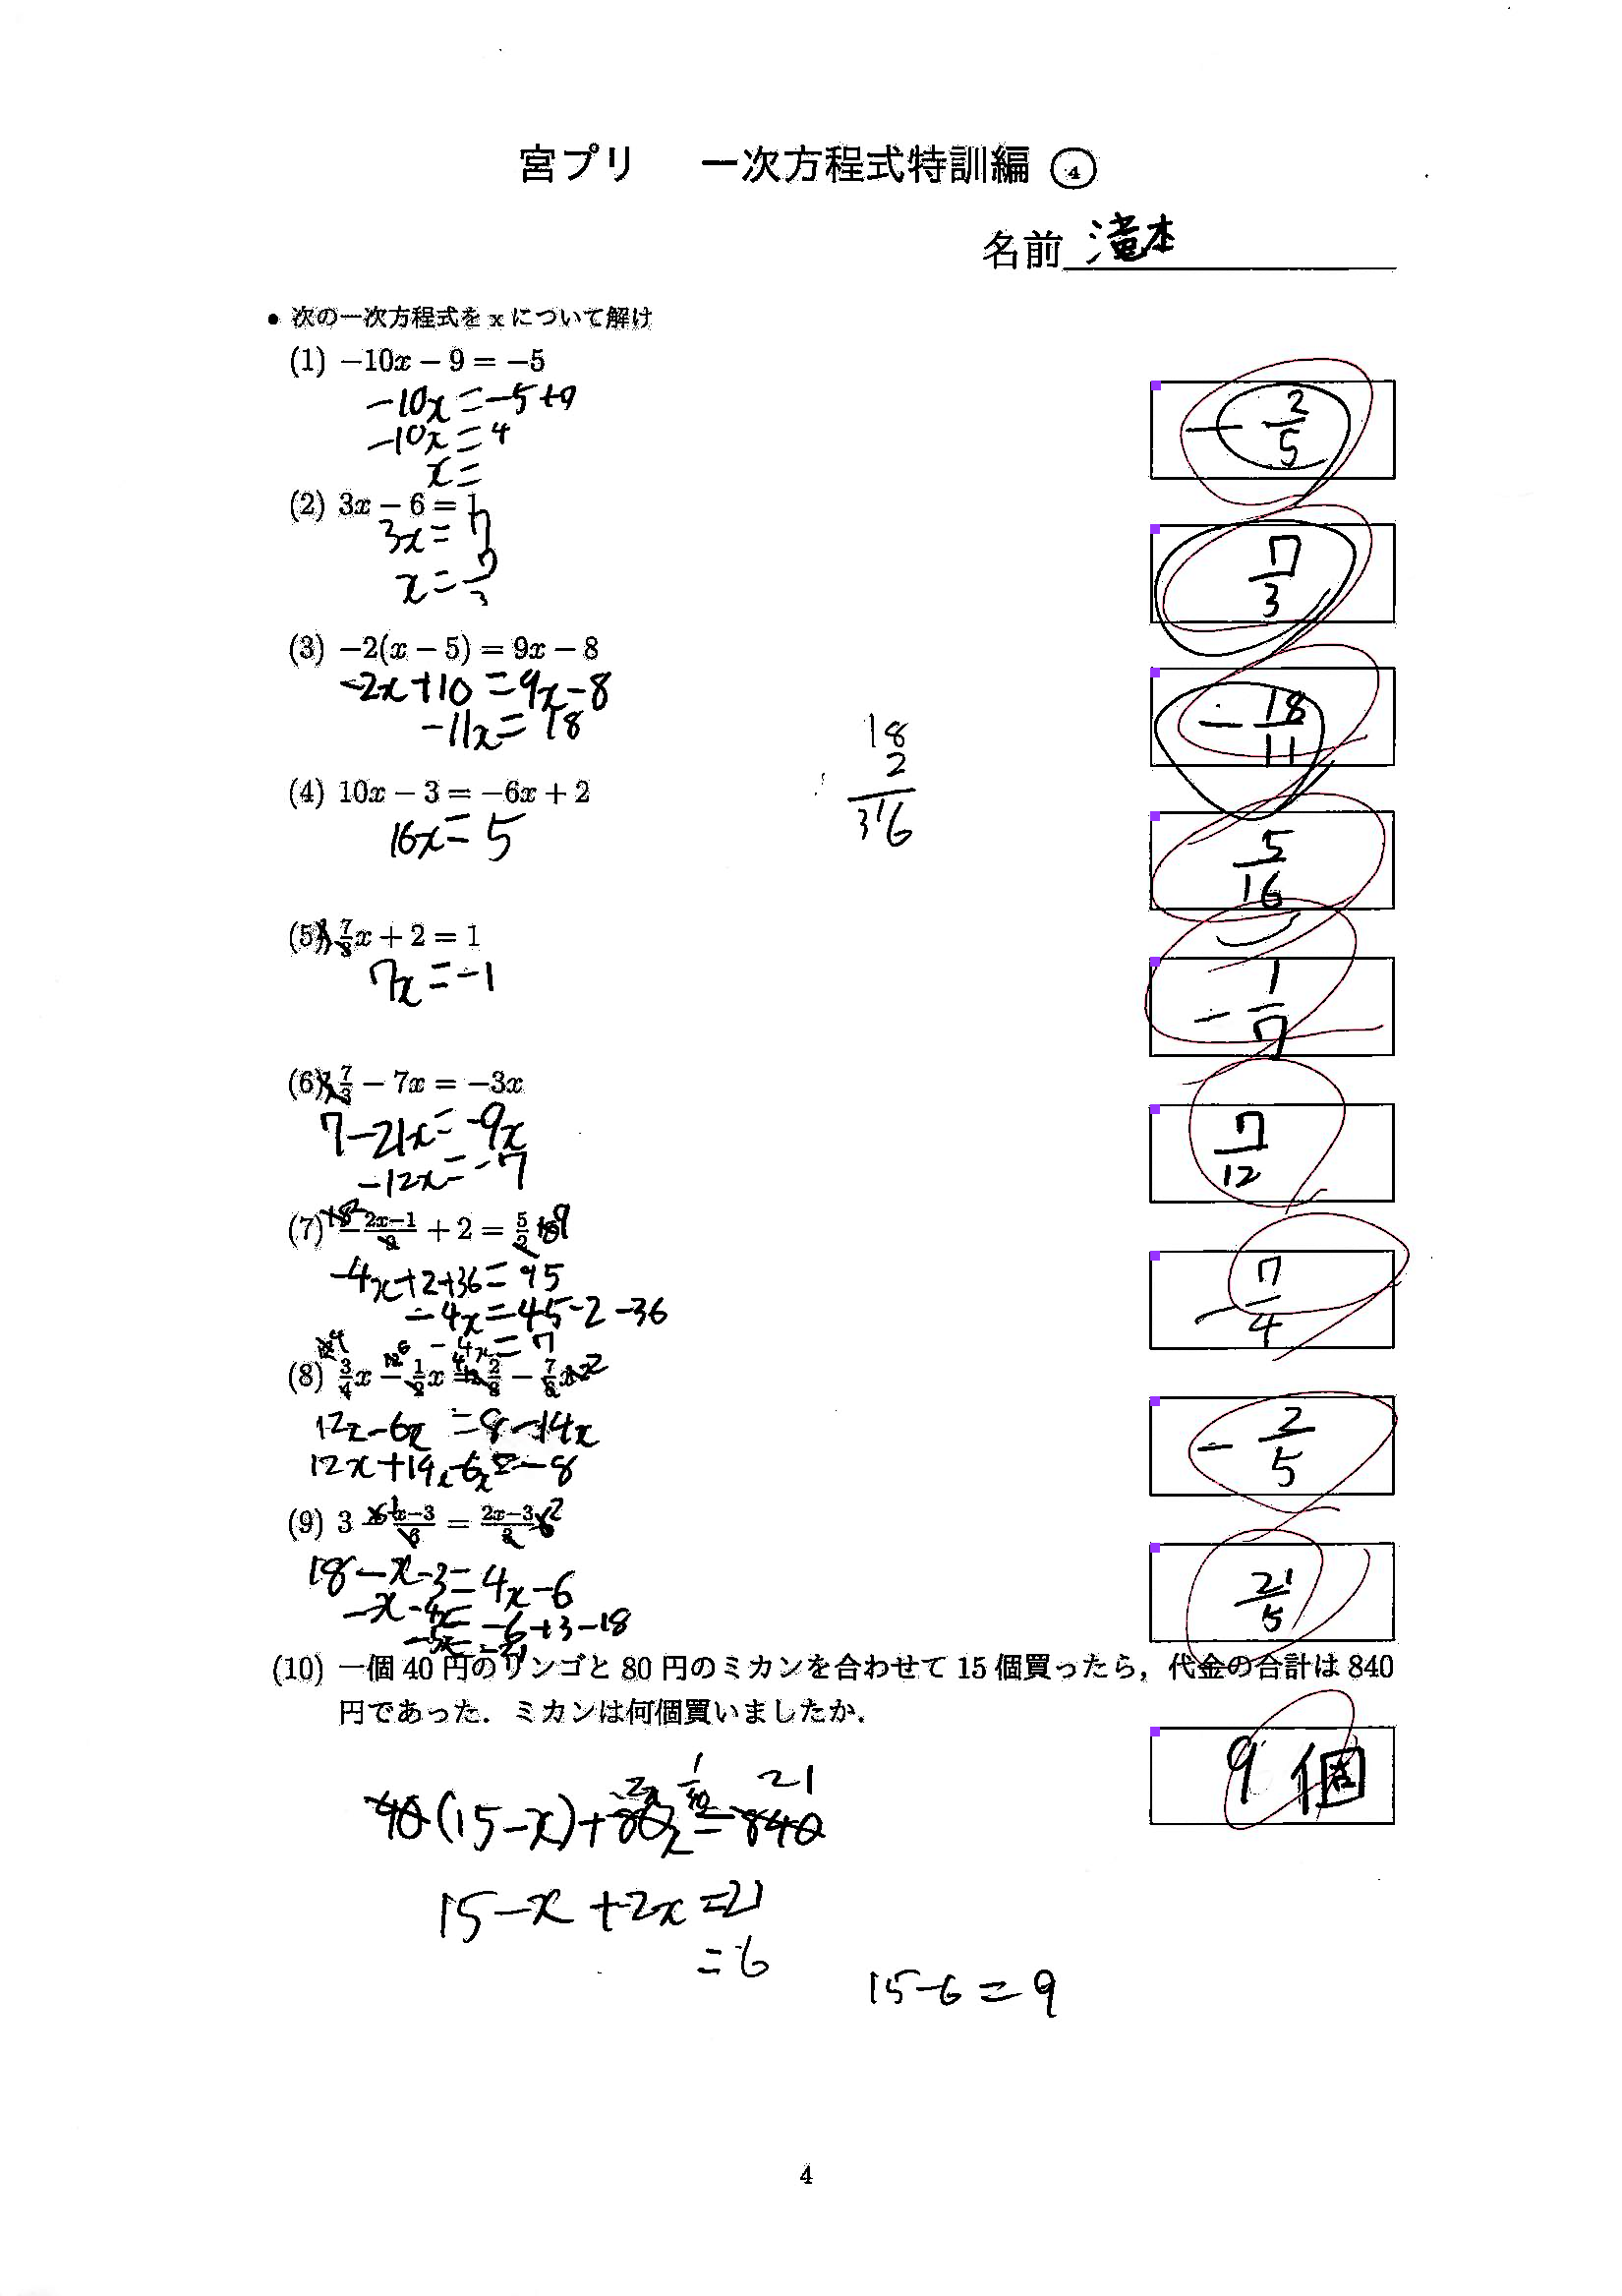 宮プリ 一次方程式特訓編 ④
名前 滝本
● 次の一次方程式を x について解け
(1) −10x − 9 = −5
−10x = −5+9
−10x = 4
x =
−2/5
(2) 3x − 6 = 1
3x = 7
x = 7/3
7/3
(3) −2(x − 5) = 9x − 8
−2x+10 = 9x−8
−11x = 18
−18/11
18
2
316
(4) 10x − 3 = −6x + 2
16x = 5
5/16
(5) 7/3x + 2 = 1
7x = −1
−1/7
(6) 7/3 − 7x = −3x
7−21x = −9x
−12x = −7
7/12
(7) −2x−1/9 + 2 = 5/2
−4x+2+36 = 45
−4x = 45−2−36
−4x = 7
−7/4
(8)
12x−6x = 8−14x
−2/5
(9) 3 − x−3/6 = 2x−3/3
18−x−3 = 4x−6
−x−4x = −6+3−18
−5x = −21
21/5
(10) 一個 40 円のリンゴと 80 円のミカンを合わせて 15 個買ったら，代金の合計は 840
円であった．ミカンは何個買いましたか．
9 個
21
40(15−x)+80x = 840
15−x+2x = 21
= 6
15−6 = 9
4